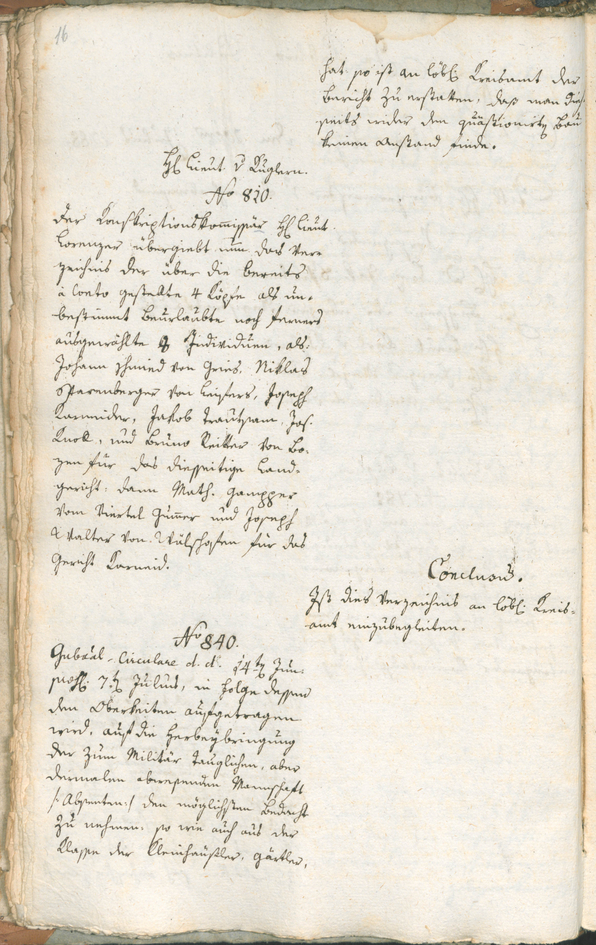 16
hat so ist an löbl. Kreisamt der
Bericht zu erstatten, daß man dies
seits wider den quästionirten Bau
keinen Anstand finde.
Hl. Lieut. v Kuglern.
No 820.
Der Konskriptionskommissär Hl. Lieut.
Lorenzer übergiebt nun das Ver-
zeichnis der über die bereits
à Conto gestellte 4 Köpfe als un-
bestimmt Beurlaubte noch ferners
ausgewählte 8 Individuen, als:
Johann Schmied von Gries, Niklas
Sparenberger von Leifers, Joseph
Karneider, Jakob Trautsam, Jos.
Knoll, und Bruno Reitter von Bo-
zen für das diesseitige Land-
gericht, dann Math. Gampper
vom Viertel Gumer und Joseph
Walter von Wälschnofen für das
Gericht Karneid.
Conclusum.
Ist dies Verzeichnis an löbl. Kreis-
amt einzubegleiten.
No 840.
Gubral-Circulare d. d. 14ten Jun.
7ten Julius, in Folge dessen
den Obrkeiten aufgetragen
wird, auf die Herbeybringung
der zum Militär tauglichen, aber
dermalen abwesenden Mannschaft
/: Absenten :/ den möglichsten Bedacht
zu nehmen, so wie auch aus der
Klasse der Kleinhäusler, Gärtler,